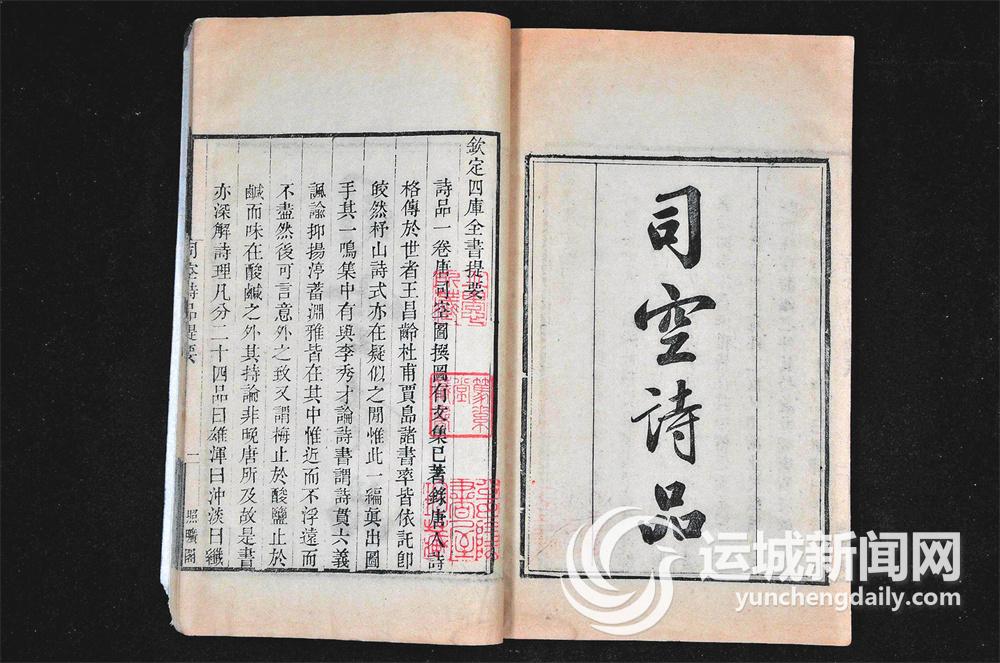 司空詩品
欽定四庫全書提要
詩品一卷唐司空圖撰圖有文集已著錄唐人詩
格傳於世者王昌齡杜甫賈島諸書率皆依託即
皎然杼山詩式亦在疑似之閒惟此一編眞出圖
手其一鳴集中有與李秀才論詩書謂詩貫六義
諷諭抑揚渟蓄淵雅皆在其中惟近而不浮遠而
不盡然後可言意外之致又謂梅止於酸鹽止於
鹹而味在酸鹹之外其持論非晚唐所及故是書
亦深解詩理凡分二十四品曰雄渾曰沖淡曰纖
司空詩品提要
一
照曠閣
运城新闻网
yunchengdaily.com